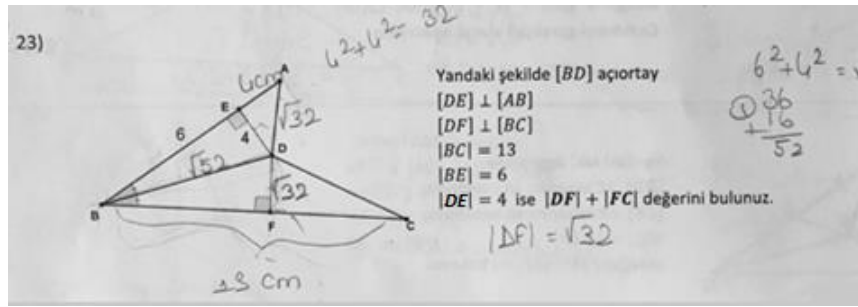 23)
4²+4²= 32
A
4cm
E
6
4
√32
D
√52
√32
B
F
C
13 cm
Yandaki şekilde [BD] açıortay
[DE] ⊥ [AB]
[DF] ⊥ [BC]
|BC| = 13
|BE| = 6
|DE| = 4 ise |DF| + |FC| değerini bulunuz.
|DF| = √32
6²+4² =
36
+16
52